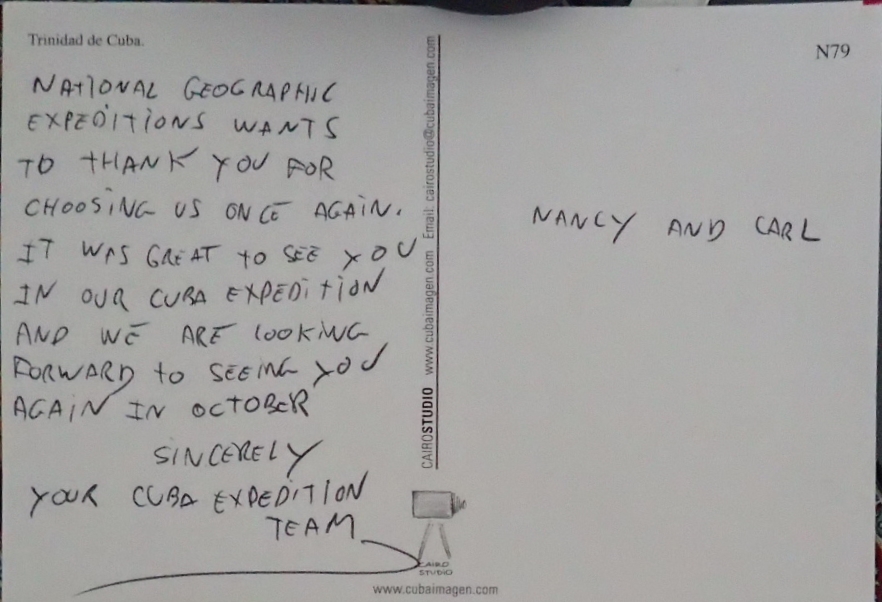 Trinidad de Cuba.
NATIONAL GEOGRAPHIC
EXPEDITIONS WANTS
TO THANK YOU FOR
CHOOSING US ONCE AGAIN.
IT WAS GREAT TO SEE YOU
IN OUR CUBA EXPEDITION
AND WE ARE LOOKING
FORWARD TO SEEING YOU
AGAIN IN OCTOBER
SINCERELY
YOUR CUBA EXPEDITION
TEAM
CAIROSTUDIO www.cubaimagen.com Email: cairostudio@cubaimagen.com
CAIRO
STUDIO
www.cubaimagen.com
N79
NANCY AND CARL